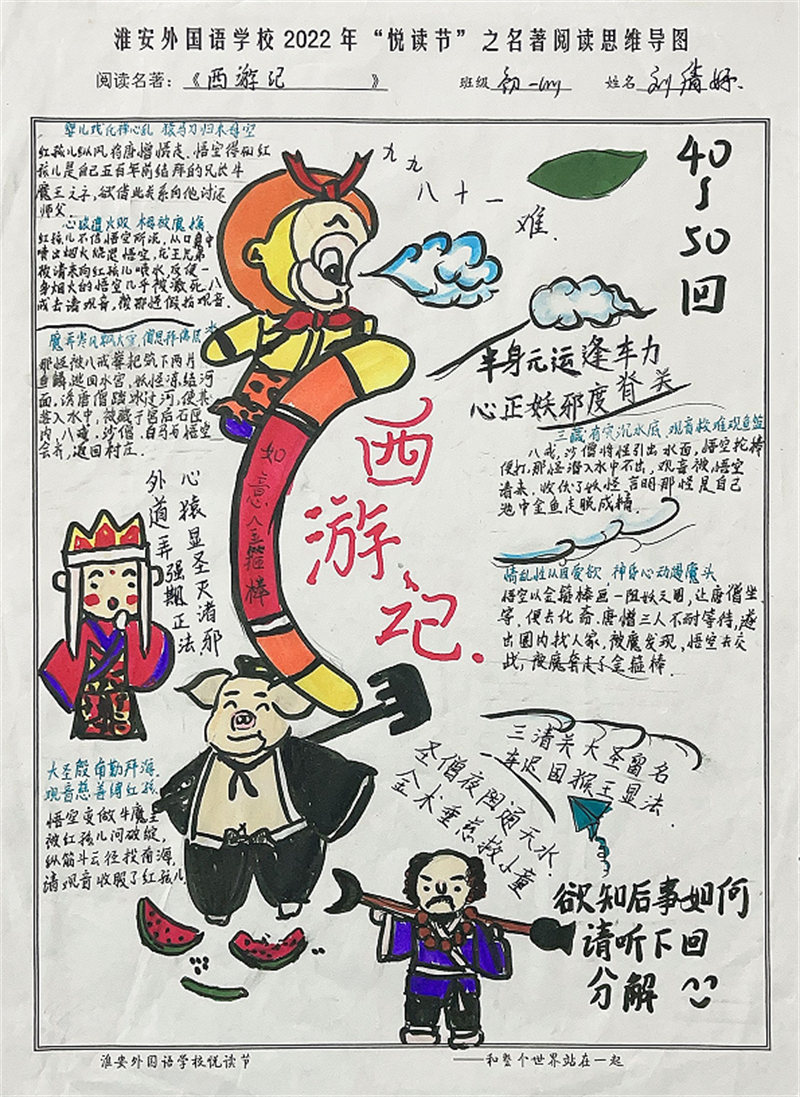 淮安外国语学校 2022 年 “悦读节” 之名著阅读思维导图
阅读名著：《西游记》 班级 初一 姓名 刘倩妤.
婴儿戏化禅心乱 猿马刀归木母空
红孩儿纵风将唐僧怪走.悟空得知红
孩儿是自己五百年前结拜的兄长牛
魔王之子,试借此关系向他讨还
师父.
心猿遭火败 木母被魔擒
红孩儿不信悟空所说,从口鼻中
喷出烟火烧退悟空,龙王兄弟
被请来向红孩儿喷水,反使一
身烟火的悟空几乎被激死.八
戒去请观音,被那怪假扮观音.
魔弄寒风飘大雪 僧思拜佛履
那怪被八戒筑下两片
鱼鳞,逃回水宫,妖怪冻结河
面,诱唐僧踏冰过河,使其
落入水中,被藏于宫后石匣
内,八戒.沙僧.白马与悟空
会齐,返回村庄.
心猿显圣灭诸邪
外道弄强欺正法
大圣殷勤拜南海
观音慈善缚红孩
悟空变做牛魔王
被红孩儿问破绽,
纵筋斗云径找
请观音收服了红孩儿
九九八十一难.
40～50回
如意金箍棒
西游记.
半身元运逢车力
心正妖邪度脊关
三藏有灾沉水底 观音救难现鱼篮
八戒,沙僧将怪引出水面,悟空抡棒
便打.那怪潜入水中不出,观音被悟空
请来.收伏了妖怪,言明那怪是自己
池中金鱼走脱成精.
情乱性从因爱欲 神昏心动遇魔头
悟空以金箍棒画一阻妖之圈,让唐僧坐
等,便去化斋.唐僧三人不耐等待,遂
出圈内找人家,被魔发现,悟空去交
此,被魔套走了金箍棒.
三清关大圣留名
一车迟国猴王显法.
圣僧夜阻通天水.
金木垂慈救小童
欲知后事如何
请听下回
分解
淮安外国语学校悦读节
——和整个世界站在一起